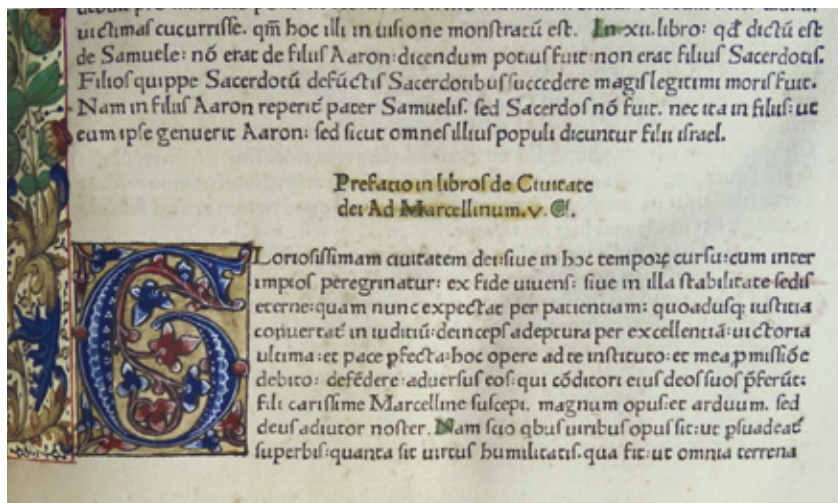 uictimas cucurrisse. qm̄ hoc illi in uisione monstratū est. In xii. libro: qđ dictū est
de Samuele: nō erat de filiis Aaron: dicendum potius fuit: non erat filius Sacerdotis.
Filios quippe Sacerdotū defūctis Sacerdotibus succedere magis legitimi moris fuit.
Nam in filiis Aaron reperit̄ pater Samuelis. sed Sacerdos nō fuit. nec ita in filiis: ut
eum ipse genuerit Aaron: sed sicut omnes illius populi dicuntur filii israel.
Prefatio in libros de Ciuitate
dei Ad Marcellinum. v. C.
GLoriosissimam ciuitatem dei: siue in hoc tempoꝝ cursu: cum inter
impios peregrinatur: ex fide uiuens: siue in illa stabilitate sedis
eterne: quam nunc expectat per patientiam: quoadusqꝫ iustitia
conuertat̄ in iuditiū: deinceps adeptura per excellentiā: uictoria
ultima: et pace ꝑfecta: hoc opere ad te instituto: et mea ꝓmissiōe
debito: defēdere: aduersus eos: qui cōditori eius deos suos p̄ferūt:
fili carissime Marcelline suscepi. magnum opus: et arduum. sed
deus adiutor noster. Nam scio qbus uiribus opus sit: ut ꝑsuadeat̄
superbis: quanta sit uirtus humilitatis. qua fit: ut omnia terrena